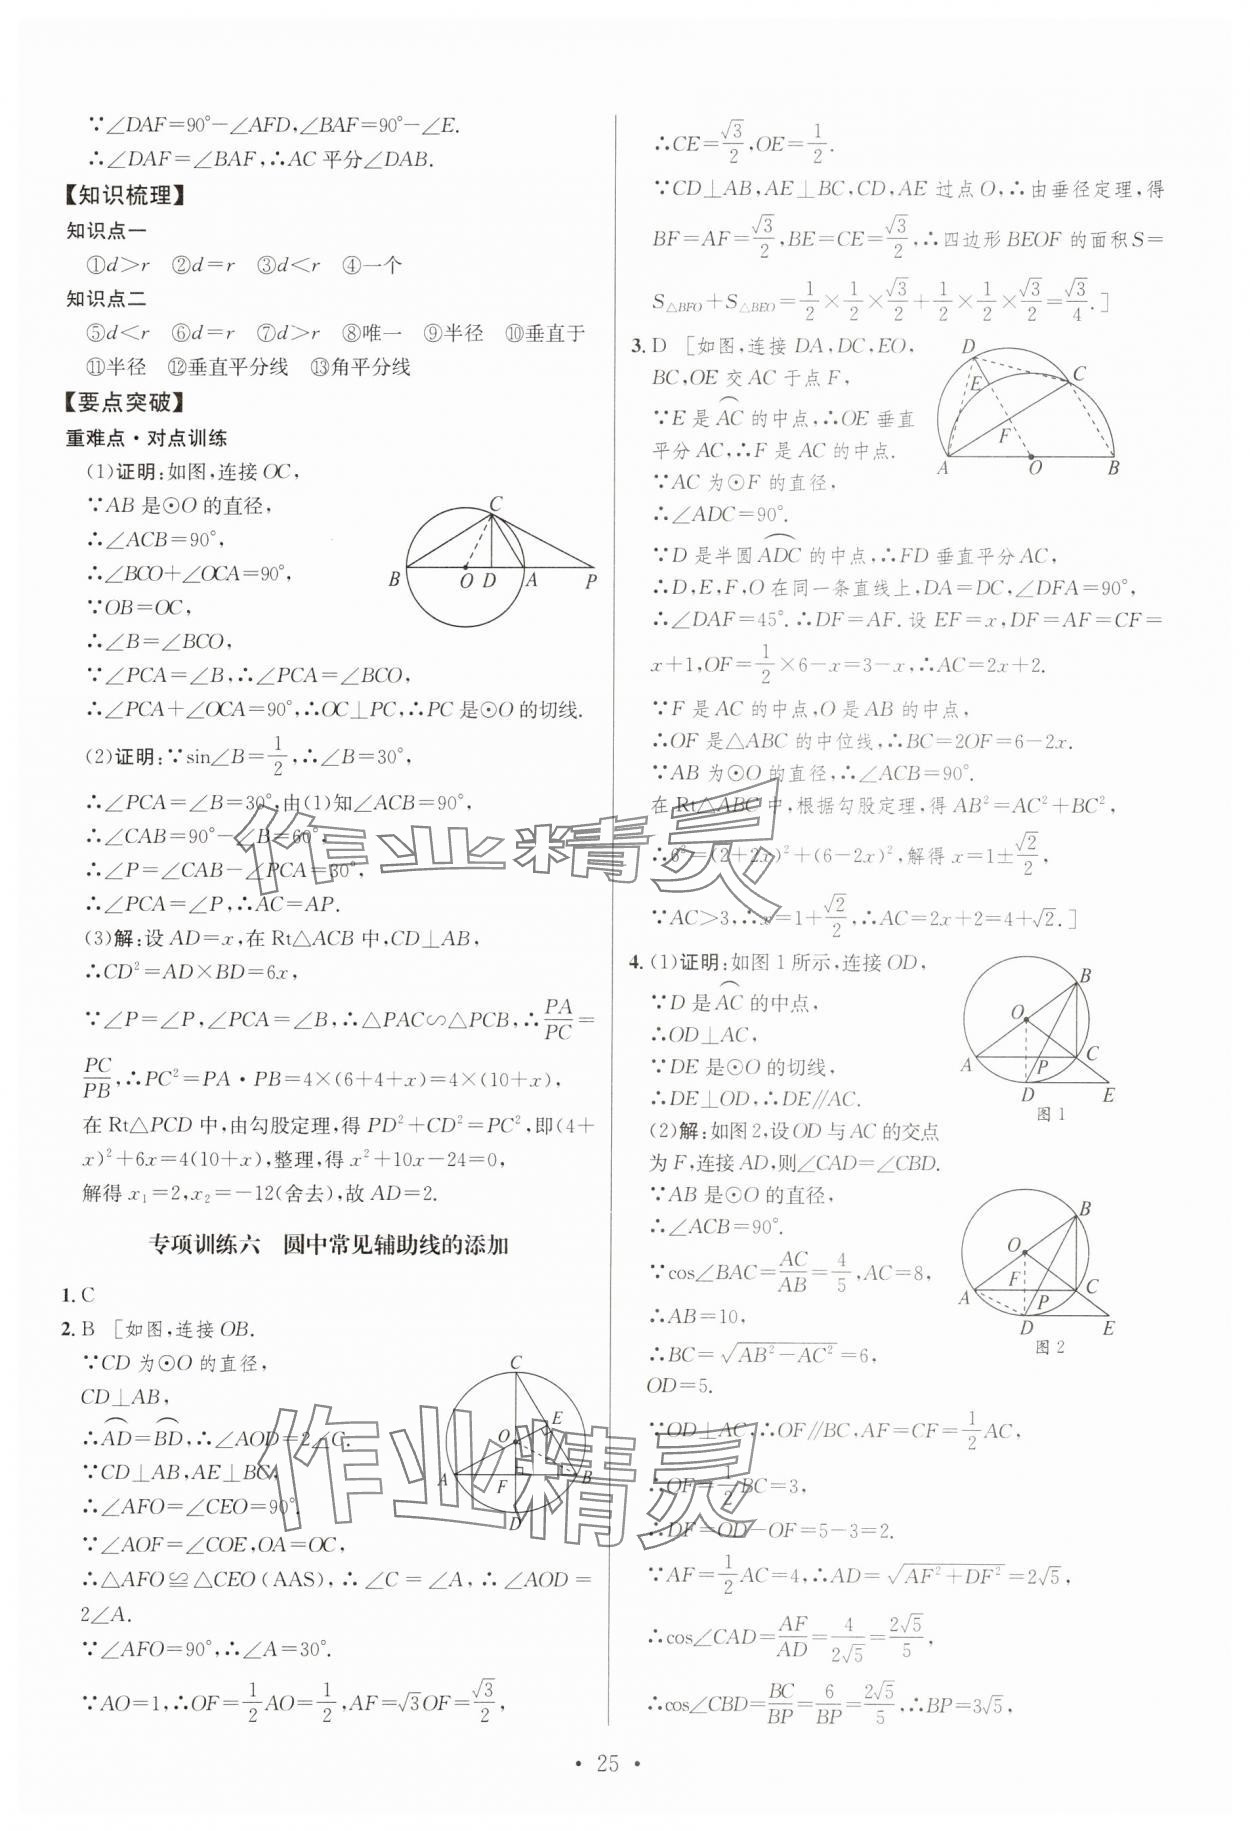 ∵∠DAF=90°-∠AFD,∠BAF=90°-∠E.
∴∠DAF=∠BAF,∴AC平分∠DAB.
【知识梳理】
知识点一
①d>r ②d=r ③d<r ④一个
知识点二
⑤d<r ⑥d=r ⑦d>r ⑧唯一 ⑨半径 ⑩垂直于
⑪半径 ⑫垂直平分线 ⑬角平分线
【要点突破】
重难点·对点训练
(1)证明:如图,连接OC,
∵AB是⊙O的直径,
∴∠ACB=90°,
∴∠BCO+∠OCA=90°,
∵OB=OC,
∴∠B=∠BCO,
∵∠PCA=∠B,∴∠PCA=∠BCO,
∴∠PCA+∠OCA=90°,∴OC⊥PC,∴PC是⊙O的切线.
C
B O D A P
(2)证明:∵sin∠B=1/2,∴∠B=30°,
∴∠PCA=∠B=30°,由(1)知∠ACB=90°,
∴∠CAB=90°-∠B=60°,
∴∠P=∠CAB-∠PCA=30°,
∴∠PCA=∠P,∴AC=AP.
(3)解:设AD=x,在Rt△ACB中,CD⊥AB,
∴CD²=AD×BD=6x,
∵∠P=∠P,∠PCA=∠B,∴△PAC∽△PCB,∴PA/PC=
PC/PB,∴PC²=PA·PB=4×(6+4+x)=4×(10+x),
在Rt△PCD中,由勾股定理,得PD²+CD²=PC²,即(4+
x)²+6x=4(10+x),整理,得x²+10x-24=0,
解得x₁=2,x₂=-12(舍去),故AD=2.
专项训练六 圆中常见辅助线的添加
1. C
2. B [如图,连接OB.
∵CD为⊙O的直径,
CD⊥AB,
∴⌒AD=⌒BD,∴∠AOD=2∠C.
∵CD⊥AB,AE⊥BC,
∴∠AFO=∠CEO=90°.
∵∠AOF=∠COE,OA=OC,
∴△AFO≌△CEO(AAS),∴∠C=∠A,∴∠AOD=
2∠A.
∵∠AFO=90°,∴∠A=30°.
∵AO=1,∴OF=1/2AO=1/2,AF=√3OF=√3/2,
C
E
O
A F B
D
∴CE=√3/2,OE=1/2.
∵CD⊥AB,AE⊥BC,CD,AE过点O,∴由垂径定理,得
BF=AF=√3/2,BE=CE=√3/2,∴四边形BEOF的面积S=
S△BFO+S△BEO=1/2×1/2×√3/2+1/2×1/2×√3/2=√3/4.]
3. D [如图,连接DA,DC,EO,
BC,OE交AC于点F,
∵E是⌒AC的中点,∴OE垂直
平分AC,∴F是AC的中点.
∵AC为⊙F的直径,
∴∠ADC=90°.
D
E C
F
A O B
∵D是半圆⌒ADC的中点,∴FD垂直平分AC,
∴D,E,F,O在同一条直线上,DA=DC,∠DFA=90°,
∴∠DAF=45°.∴DF=AF.设EF=x,DF=AF=CF=
x+1,OF=1/2×6-x=3-x,∴AC=2x+2.
∵F是AC的中点,O是AB的中点,
∴OF是△ABC的中位线,∴BC=2OF=6-2x.
∵AB为⊙O的直径,∴∠ACB=90°.
在Rt△ABC中,根据勾股定理,得AB²=AC²+BC²,
∴6²=(2+2x)²+(6-2x)²,解得x=1±√2/2,
∵AC>3,∴x=1+√2/2,∴AC=2x+2=4+√2.]
4. (1)证明:如图1所示,连接OD,
∵D是⌒AC的中点,
∴OD⊥AC,
∵DE是⊙O的切线,
∴DE⊥OD,∴DE∥AC.
B
O
A P C
D E
图1
(2)解:如图2,设OD与AC的交点
为F,连接AD,则∠CAD=∠CBD.
∵AB是⊙O的直径,
∴∠ACB=90°.
∵cos∠BAC=AC/AB=4/5,AC=8,
∴AB=10,
∴BC=√(AB²-AC²)=6,
OD=5.
B
O
F
A P C
D E
图2
∵OD⊥AC,∴OF∥BC,AF=CF=1/2AC,
∴OF=1/2BC=3,
∴DF=OD-OF=5-3=2.
∵AF=1/2AC=4,∴AD=√(AF²+DF²)=2√5,
∴cos∠CAD=AF/AD=4/2√5=2√5/5,
∴cos∠CBD=BC/BP=6/BP=2√5/5,∴BP=3√5,
·25·
作业精灵
作业精灵